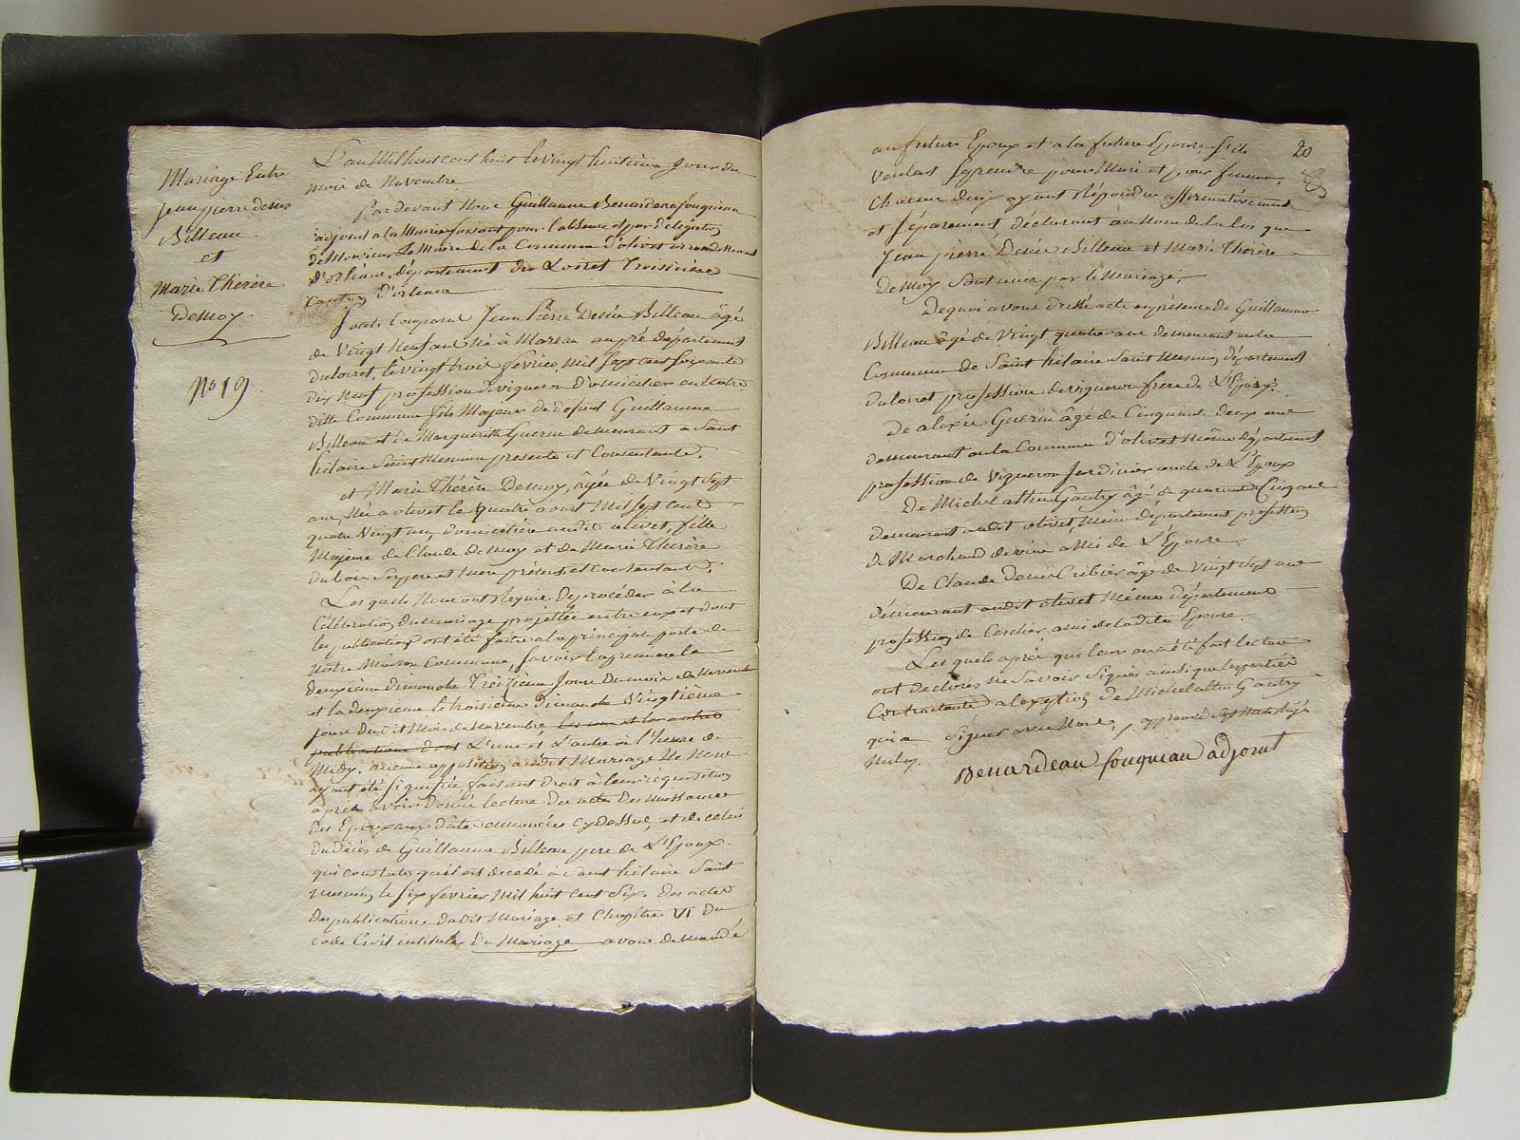 Mariage Entre
Jean pierre desir
Billeau
et
Marie Therèse
Demoy
No 19
L'an Mil huit cent huit le vingt huitieme Jour du
mois de Novembre
Pardevant Nous Guillaume Benardeau fouqueau
adjoint a la Mairie faisant pour l'absence et par délégation
de Monsieur Le Maire de la Commune d'olivet arrondissement
d'orléans, département du Loiret troisième
Canton d'orleans
Sont Comparus Jean Pierre Desir Billeau âgé
de vingt Neuf ans Né à Mareau au pré département
du loiret, le vingt trois fevrier Mil sept cent soixante
dix neuf profession de vigneron domicilier en Notre
ditte Commune fils Majeur de defunt Guillaume
Billeau et de Marguerite Guerin demeurant a Saint
hilaire Saint Mesmin presente et Consentante.
et Marie Therèse Demoy, âgée de Vingt Sept
ans, Née a olivet le quatre aoust Mil Sept cent
quatre Vingt un, domiciliée audit olivet, fille
Majeure de Claude demoy et de Marie Therèse
Dubois Ses pere et Mere présents et Consentants.
Lesquels Nous ont Requis de procéder à la
Célébration du mariage projettée entre eux et dont
les publications ont été faites a la principale porte de
Notre Maison Commune, Savoir la premiere le
deuxieme dimanche Treizieme Jour du mois de Novembre
et la deuxieme le troisieme dimanche Vingtième
jour dudit Mois de Novembre,
publications dont L'une et L'autre à l'heure de
Midy. aucune opposition audit Mariage Ne Nous
ayant été Signifiée faisant droit à leur réquisition
après avoir donné lecture des actes des Naissances
des Epoux aux dates enoncées cy dessus, et de celui
du décès de Guillaume Billeau pere de L'Epoux
qui constate qu'il est decedé à Saint hilaire Saint
mesmin le six fevrier Mil huit cent Six. des actes
des publications dudit Mariage et Chapitre VI du
code Civil intitulé Du Mariage avons demandé
20
au futur Epoux et a la future Epouse S'ils
veulent Se prendre pour Mari et pour femme,
Chacun d'eux ayant Répondu affirmativement
et Séparement déclarons au Nom de la loi que
Jean pierre Desir Billeau et Marie Therèse
Demoy Sont unis par le Mariage;
De quoi avons dressé acte en présence de Guillaume
Billeau âgé de Vingt quatre ans demeurant en la
Commune de Saint hilaire Saint Mesmin, département
du loiret profession de vigneron frere de L'Epoux.
De alexis Guerin âgé de Cinquante deux ans
demeurant en la Commune d'olivet même département
profession de Vigneron Jardinier oncle de L'Epoux
De Michel Gautry âgé de quarante Cinq ans
demeurant audit olivet, même département profession
de Marchand de vins ami de L'Epouse.
De Claude Cribier âgé de vingt Sept ans
démeurant audit olivet Même département
profession de Cerclier, ami de ladite Epouse.
Lesquels après que leur en a été fait lecture
ont declarés Ne Savoir Signer ainsi que les parties
Contractantes a l'exeption de Michel Gautry
qui a Signés avec Nous,
Benardeau fouqueau adjoint